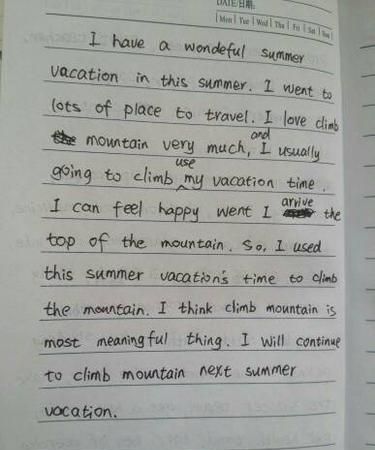 DATE/日期:
Mon Tue Wed Thu Fri Sat Sun
I have a wondeful summer
vacation in this summer. I went to
lots of place to travel. I love climb
mountain very much, and I usually
going to climb use my vacation time.
I can feel happy went I arrive the
top of the mountain. So, I used
this summer vacation's time to climb
the mountain. I think climb mountain is
most meaningful thing. I will continue
to climb mountain next summer
vacation.